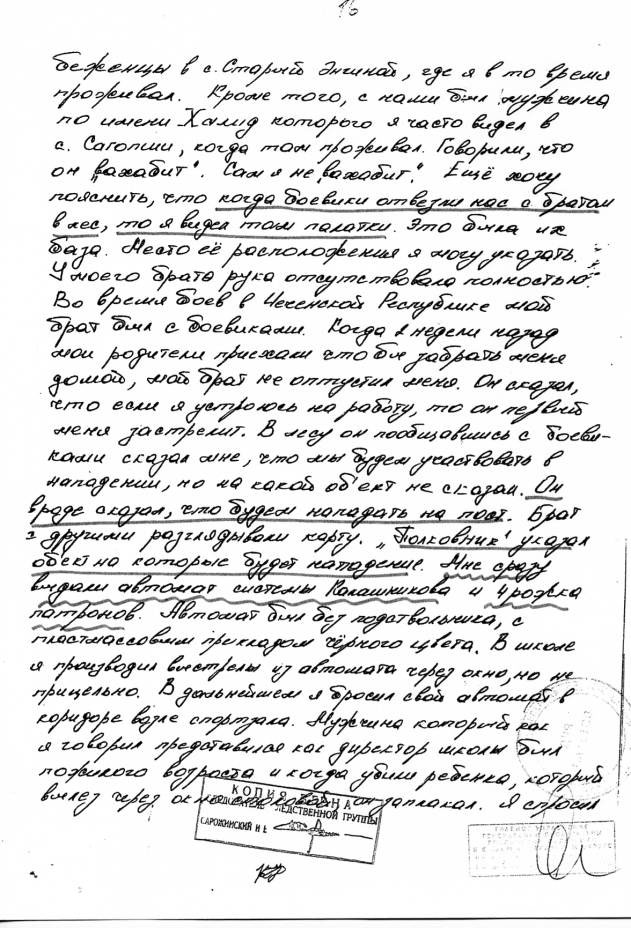 16
беженцы в с. Старый Энгиной, где я в то время
проживал. Кроме того, с нами был мужчина
по имени Халид которого я часто видел в
с. Сагопши, когда там проживал. Говорили, что
он „вахабит“. Сам я не „вахабит“. Ещё хочу
пояснить, что когда боевики отвезли нас с братом
в лес, то я видел там палатки. Это была их
база. Место её расположения я могу указать.
У моего брата рука отсутствовала полностью.
Во время боев в Чеченской Республике мой
брат был с боевиками. Когда 2 недели назад
мои родители приехали что бы забрать меня
домой, мой брат не отпустил меня. Он сказал,
что если я устроюсь на работу, то он первый
меня застрелит. В лесу он пообщавшись с боеви-
ками сказал мне, что мы будем участвовать в
нападении, но на какой об'ект не сказал. Он
вроде сказал, что будем нападать на пост. Брат
с другими разглядывали карту. „Полковник“ указал
об'ект на которые будет нападение. Мне сразу
выдали автомат системы Калашникова и 4 рожка
патронов. Автомат был без подствольника, с
пластмассовым прикладом чёрного цвета. В школе
я производил выстрелы из автомата через окно, но не
прицельно. В дальнейшем я бросил свой автомат в
коридоре возле спортзала. Мужчина который как
я говорил представился как директор школы был
пожилого возраста и когда убили ребенка, который
вылез через окно он заплакал. Я спросил
КОПИЯ ВЕРНА
СЛЕДОВАТЕЛЬ СЛЕДСТВЕННОЙ ГРУППЫ
САРОЖИНСКИЙ И Е